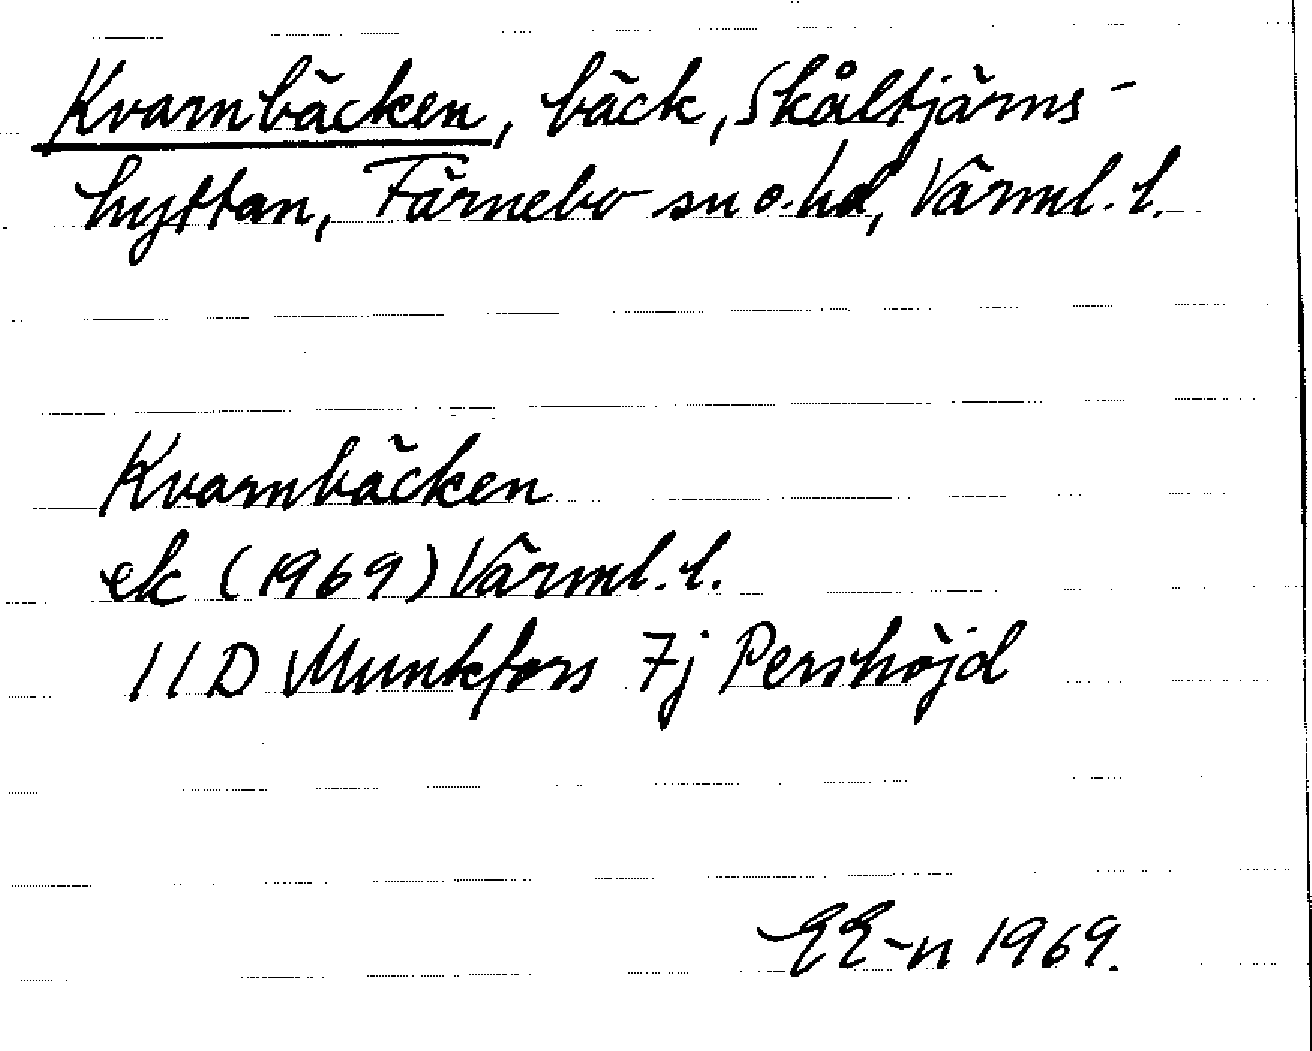 Kvarnbäcken, bäck, Skåltjärns-
hyttan, Färnebo sn o. hd, Värml. l.
Kvarnbäcken
ek (1969) Värml. l.
11D Munkfors 7j Pershöjd
EE-n 1969.